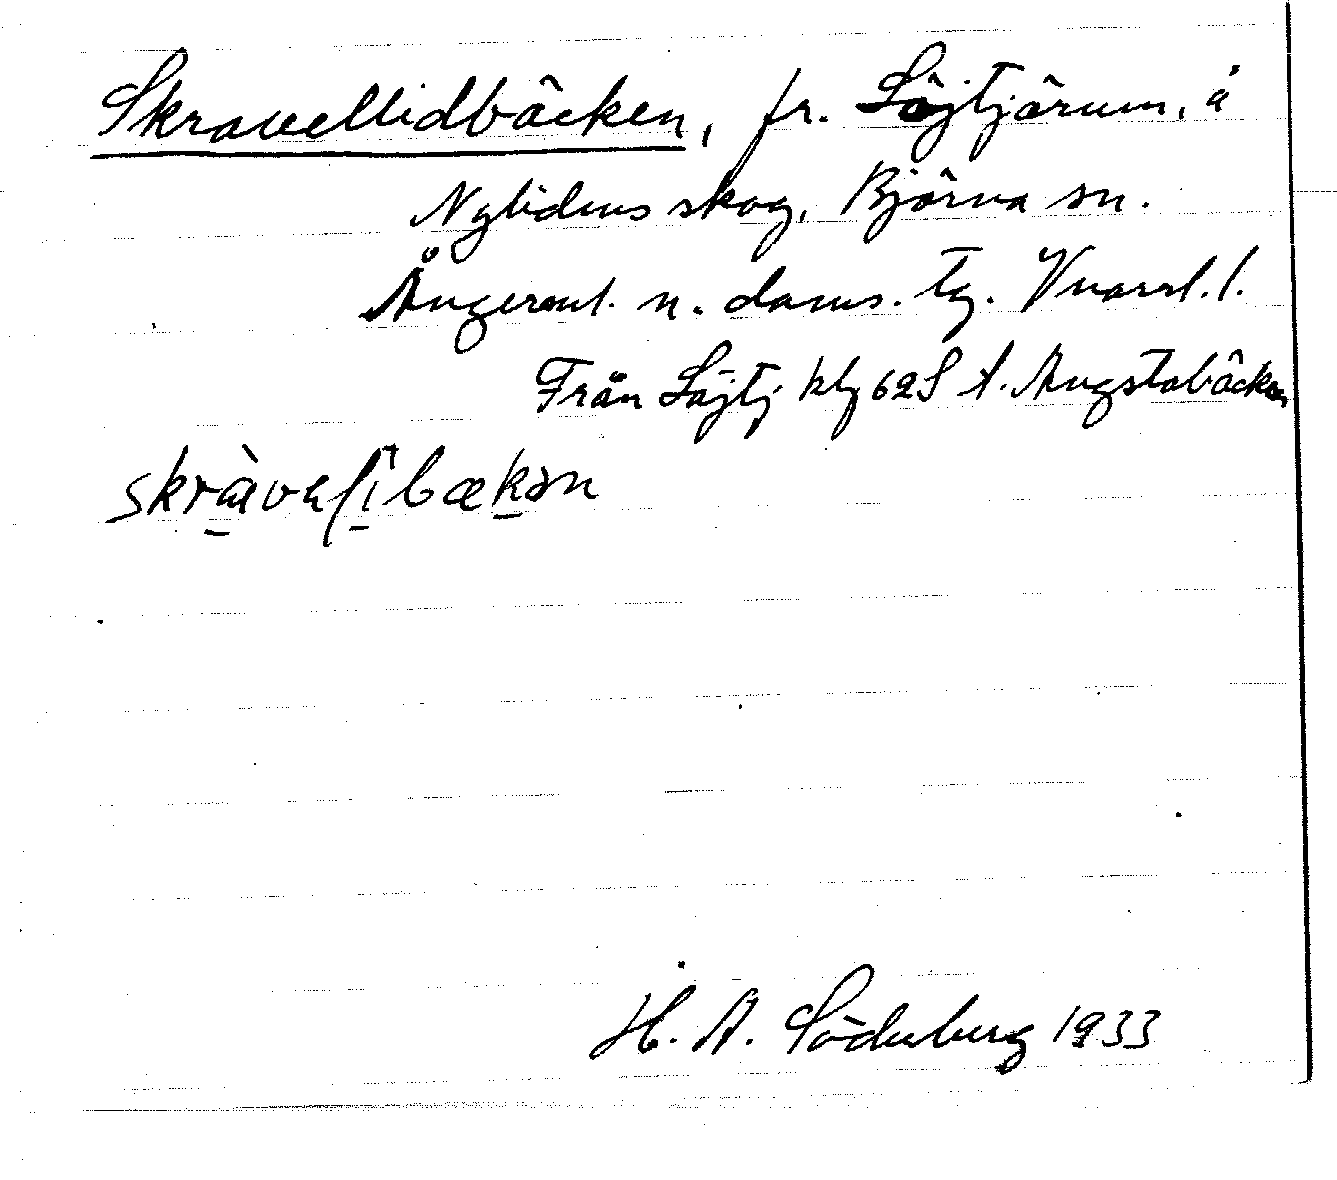 Skravellidbäcken, fr. Löjtjärnen, å
Nylidens skog, Björna sn.
Ångerml. n. doms. tg. Vnorrl. l.
Från Löjtj klg 62 S t. Ängstabäcken
bækən
H. A. Söderberg 1933